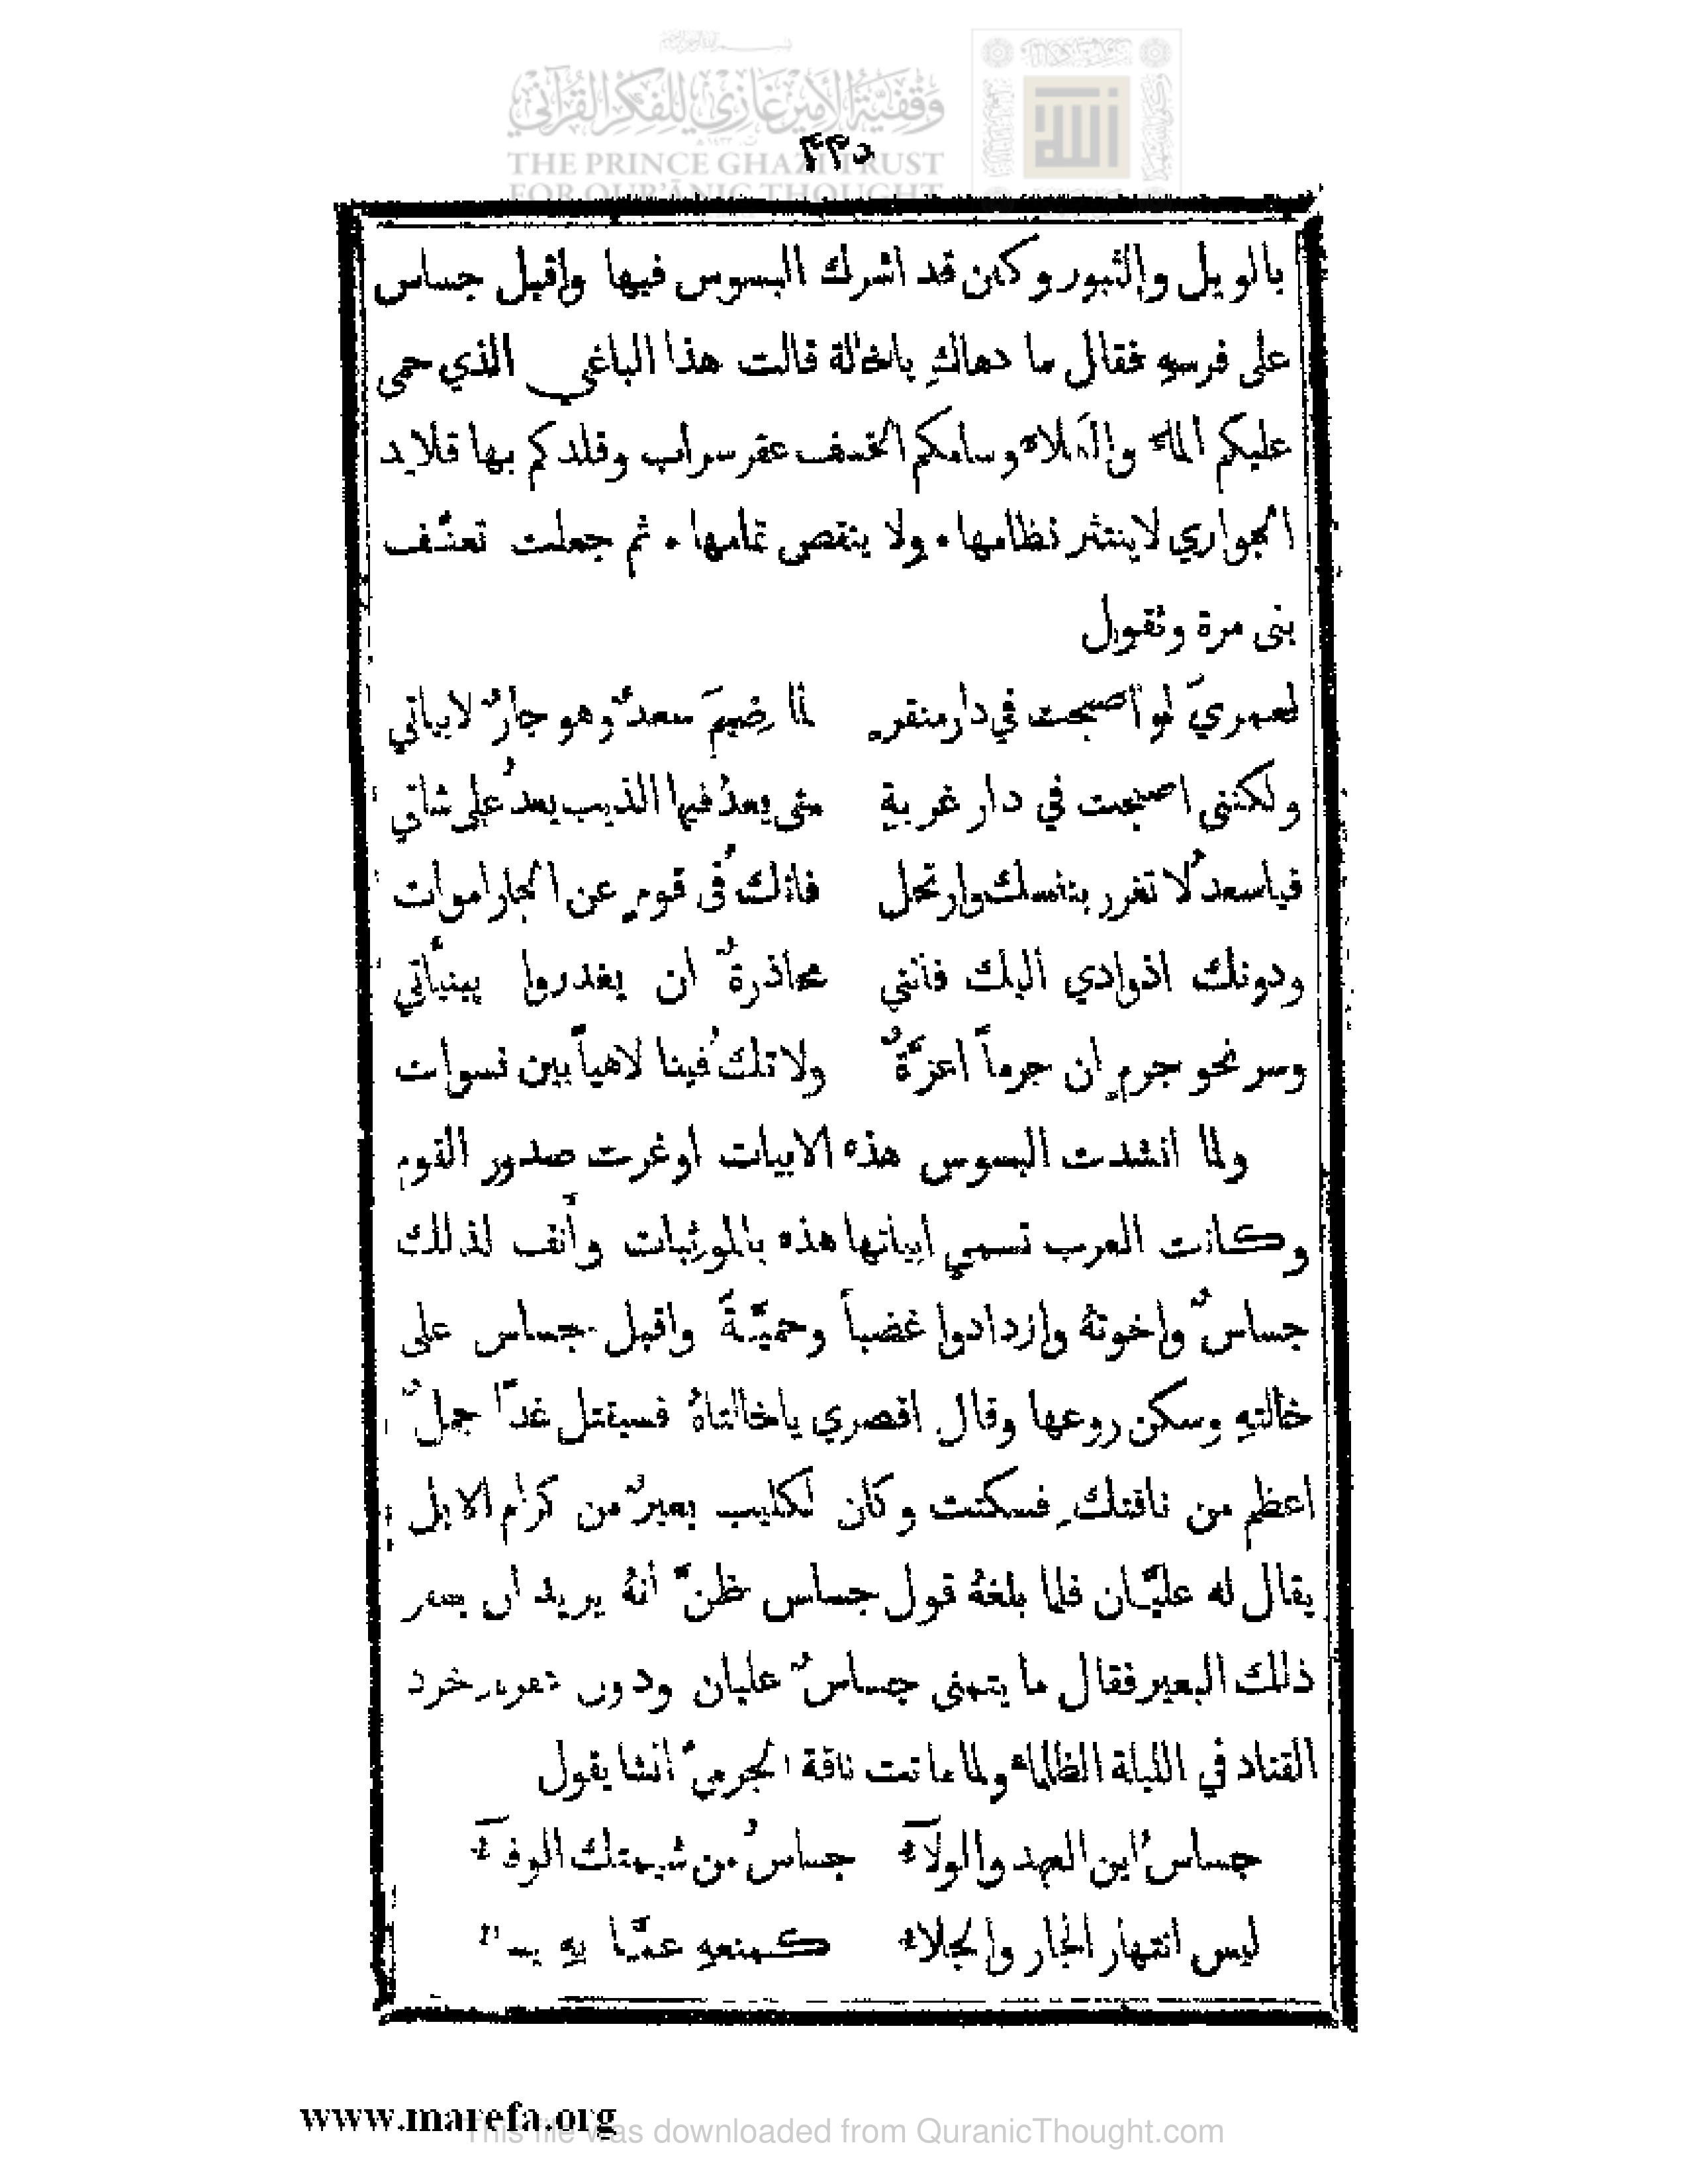 وقفية الأمير غازي للفكر القرآني
THE PRINCE GHAZI TRUST
FOR QUR'ĀNIC THOUGHT
٤٣٥
بالويل والثبور وكان قد اشرك البسوس فيها واقبل جساس
على فرسهِ فقال ما دهاكِ ياخالة قالت هذا الباغي الذي حمى
عليكم الماء والكلاء وسامكم الخسف عقر سراب وقلدكم بها قلايد
الجواري لاينتثر نظامها ٠ ولا ينقص تمامها ٠ ثم جعلت تعنّف
بنى مرة وتقول
لعمريَ لو اصبحت في دار منقرٍ لما ضِيمَ سعدٌ وهو جارٌ لابياتي
ولكننى اصبحت في دار غربةٍ متى يعدُ فيها الذيب يعدُ على شاتي
فياسعدُ لا تغرر بنفسك وارتحل فانك فى قومٍ عن الجار اموات
ودونك اذوادي اليك فانني محاذرةٌ ان يغدروا ببنيأتي
وسر نحو جرمٍ ان جرماً اعزَّةٌ ولا تكُ فينا لاهياً بين نسوات
ولما انشدت البسوس هذه الابيات اوغرت صدور القوم
وكانت العرب تسمي ابياتها هذه بالموثِبات وأنف لذلك
جساسٌ واخوتهُ وازدادوا غضباً وحميَّةً واقبل جساس على
خالتهِ وسكن روعها وقال اقصري ياخالتاهُ فسيقتل غدًا جملٌ
اعظم من ناقتكِ فسكتت وكان لكليب بعيرٌ من كرام الابل
يقال له عليَّان فلما بلغهُ قول جساس ظنَّ انهُ يريد ان
ذلك البعير فقال ما يتمنى جساسٌ عليان ودون خرد
القتاد في الليلة الظلماء ولما ماتت ناقة الجرميّ انشا يقول
جساسُ اين العهد والولآء جساسُ من شيمتك الوفآء
ليس انتهار الجار والجلاء كمنعهِ عمَّا بهِ
www.marefa.org
This file was downloaded from QuranicThought.com